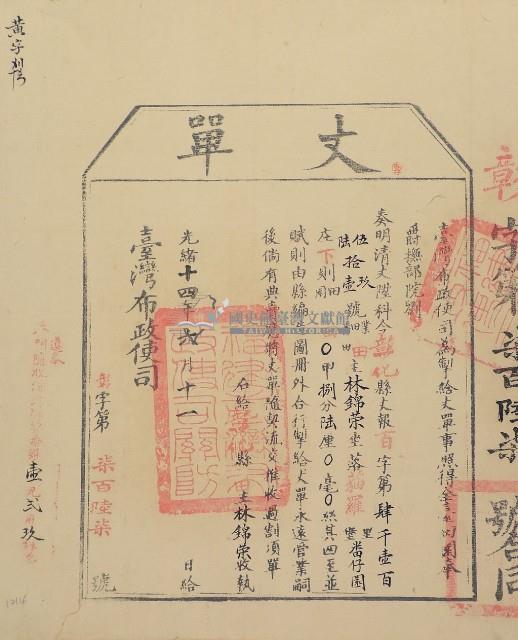 丈單
臺灣布政使司為掣給丈單事照得全臺田園奉
爵撫部院劉
奏明清丈陞科今彰化縣丈報百字第肆千壹百
伍玖
陸拾壹號田業主林錦荣坐落猫羅堡里番仔園
庄下則田
〇甲捌分陸厘〇毫〇絲其四至並
賦則由縣編造圖冊外合行掣給丈單永遠管業嗣
後倘有典賣應將丈單隨契流交推收過割須單
右給縣主林錦荣收執
光緒十四年
月十一
日給
臺灣布政使司
彰字第柒百陸柒號
字第柒百陸柒號合同
彰
黃字
國史館臺灣文獻館
TAIWAN HISTORICA
1214